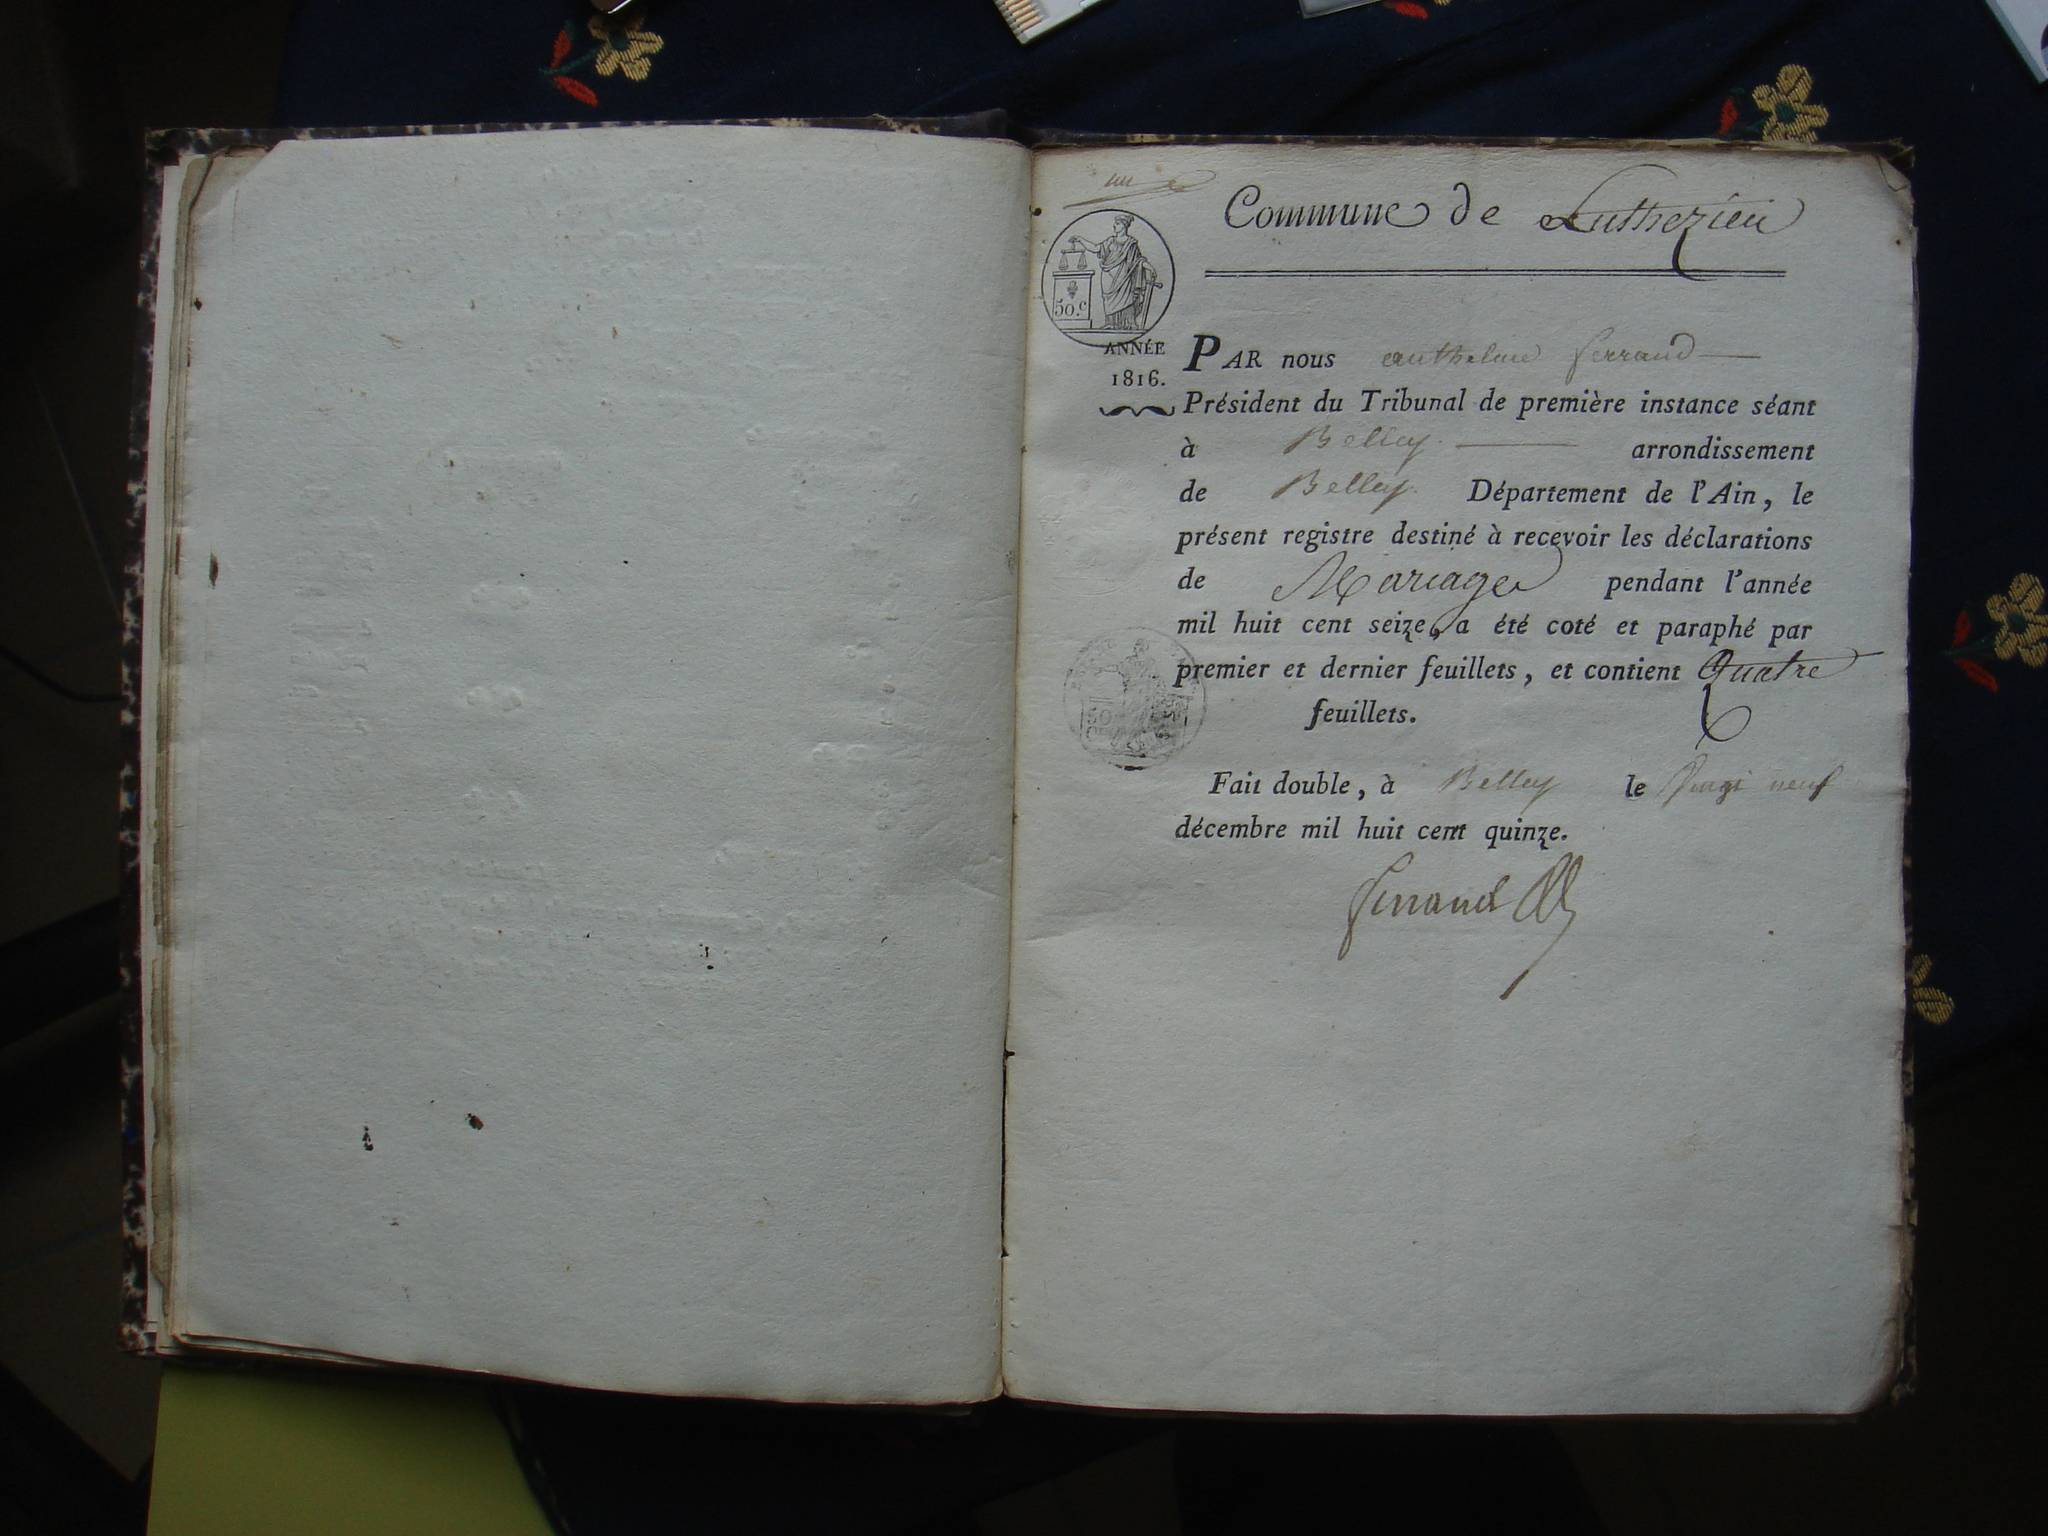 un
Commune de Luthezieu
50.c
ANNÉE
1816.
PAR nous anthelme ferrand
Président du Tribunal de première instance séant
à Belley arrondissement
de Belley Département de l'Ain, le
présent registre destiné à recevoir les déclarations
de Mariage pendant l'année
mil huit cent seize, a été coté et paraphé par
premier et dernier feuillets, et contient Quatre
feuillets.
50
Fait double, à Belley le vingt neuf
décembre mil huit cent quinze.
ferrand